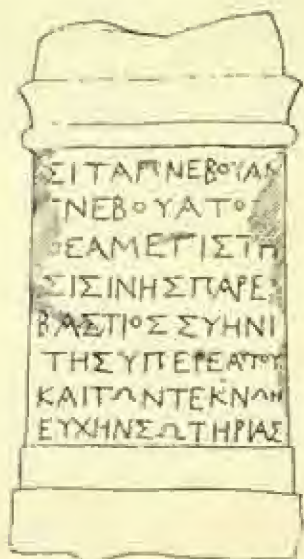 ΣΙΤΑΡΙΝΕΒΟΥΑΝ
ΝΕΒΟΥΑΤΟΣ
ΘΕΑΜΕΓΙΣΤΗ
ΣΙΣΙΝΗΣΠΑΡΕ
ΒΑΣΤΙΟΣΣΥΗΝΙ
ΤΗΣΥΠΕΡΕΑΤΟΥ
ΚΑΙΤΩΝΤΕΚΝΩΝ
ΕΥΧΗΝΣΩΤΗΡΙΑΣ